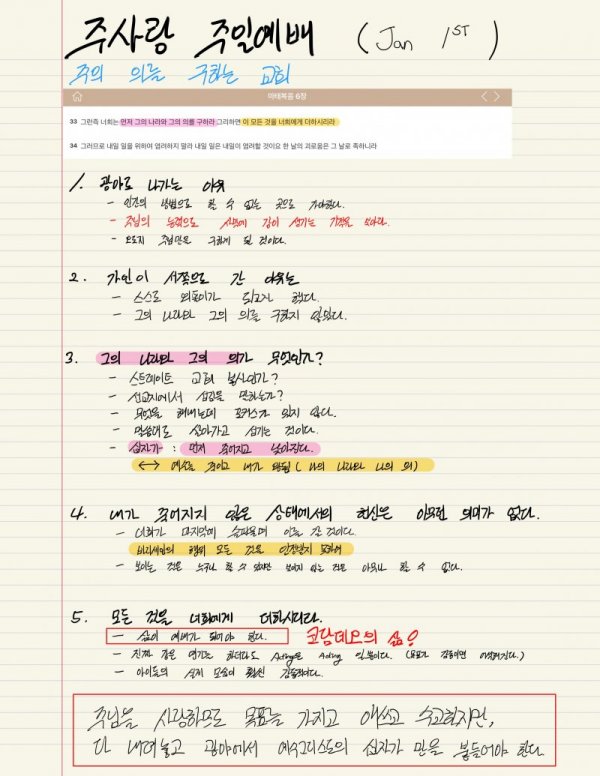 주사랑 주일예배 (Jan 1ST)
주의 의를 구하는 교회
마태복음 6장
33 그런즉 너희는 먼저 그의 나라와 그의 의를 구하라 그리하면 이 모든 것을 너희에게 더하시리라
34 그러므로 내일 일을 위하여 염려하지 말라 내일 일은 내일이 염려할 것이요 한 날의 괴로움은 그 날로 족하니라
1. 광야로 나가는 이유
- 인간의 방법으로 할 수 없는 곳으로 가야한다.
- 주님의 능력으로 사막에 길이 생기는 기적을 보아라.
- 오로지 주님만을 구하게 될 것이다.
2. 가인이 서쪽으로 간 이유는
- 스스로 의로이가 되고자 했다.
- 그의 나라와 그의 의를 구하지 않았다.
3. 그의 나라와 그의 의가 무엇인가?
- 스트레이트 교회 봉사인가?
- 선교지에서 섬김을 말하는가?
- 무엇을 해내는데 포커스가 있지 않다.
- 말씀대로 살아가고 섬기는 것이다.
- 십자가 : 먼저 죽어지고 낮아진다.
<-> 예수는 죽이고 내가 (나의 나라와 나의 의)
4. 내가 죽어지지 않은 상태에서의 헌신은 아무런 의미가 없다.
- 너희가 마지막에 슬피울며 이를 간 것이다.
바리새인의 행위 모든 것을 인정받지 못하여
- 보이는 것은 누구나 할 수 있지만 보이지 않는 것은 아무나 할 수 없다.
5. 모든 것을 너희에게 더하시리라.
- 삶이 예배가 되어야 한다. 코람데오의 삶!
- 진짜 같은 연기는 하더라도 Acting은 Acting 일뿐이다. (목표가 감동이면 어색해진다.)
- 아이들의 실제 모습이 훨씬 감동적이다.
주님을 사랑하므로 목표를 가지고 애쓰고 수고하지만,
다 내려놓고 광야에서 예수그리스도의 십자가 만을 붙들어야 한다.